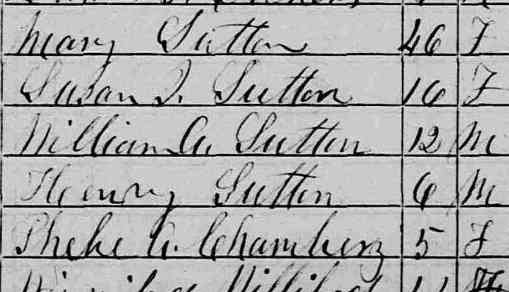 Mary Sutton 46 F
Susan J. Sutton 16 F
William A Sutton 12 M
Henry Sutton 6 M
Phebe A. Chambers 5 F